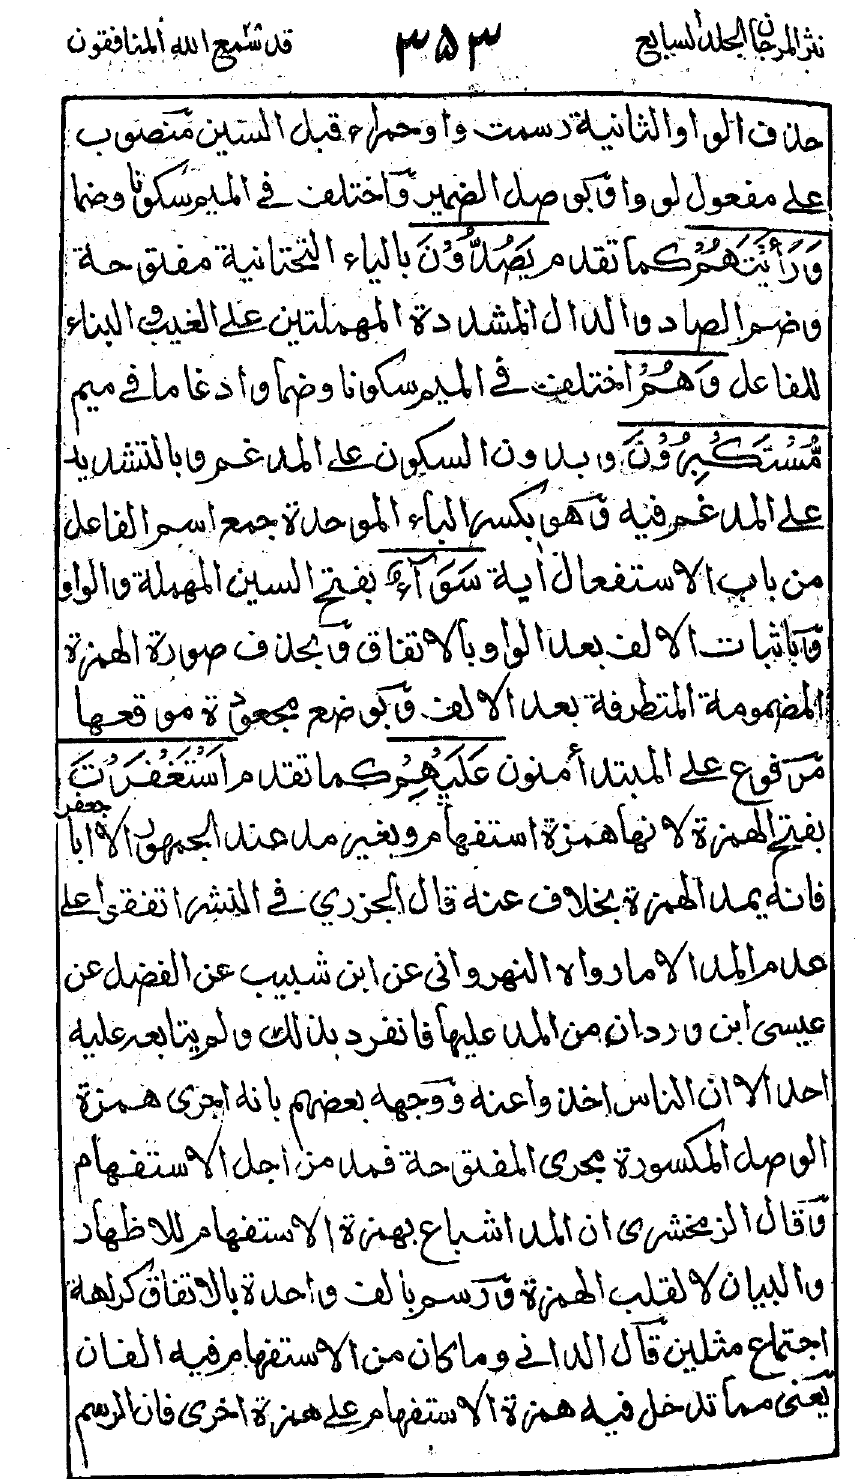 نثر المرجان المجلد السابع
٣٥٣
قد سمع الله المنافقون
حذف الواو الثانية رسمت واو حمراء قبل السين منصوب
على مفعول لووا وبوصل الضمير واختلف في الميم سكونا وضما
وَرَأَيْتَهُمْ كما تقدم يَصُدُّوْنَ بالياء التحتانية مفتوحة
وضم الصاد والدال المشددة المهملتين على الغيب والبناء
للفاعل وَهُمْ اختلف في الميم سكونا وضما وادغاما في ميم
مُّسْتَكْبِرُوْنَ وبدون السكون على المدغم وبالتشديد
على المدغم فيه وهو بكسر الباء الموحدة جمع اسم الفاعل
من باب الاستفعال أية سَوَآءٌ بفتح السين المهملة والواو
وباثبات الالف بعد الواو بالاتفاق وبحذف صورة الهمزة
المضمومة المتطرفة بعد الالف وبوضع مجعودة موقعها
مرفوع على المبتدأ منون عَلَيْهِمْ كما تقدم اَسْتَغْفَرْتَ
بفتح الهمزة لانها همزة استفهام وبغير مد عند الجمهور الا ابا جعفر
فانه يمد الهمزة بخلاف عنه قال الجزري في النشر اتفقوا على
عدم المد الا ما رواه النهرواني عن ابن شبيب عن الفضل عن
عيسى ابن وردان من المد عليها فانفرد بذلك ولم يتابعه عليه
احد الا ان الناس اخذوا عنه ووجهه بعضهم بانه اجرى همزة
الوصل المكسورة مجرى المفتوحة فمد من اجل الاستفهام
وقال الزمخشرى ان المد اشباع بهمزة الاستفهام للاظهار
والبيان لا لقلب الهمزة ورسم بالف واحدة بالاتفاق كراهة
اجتماع مثلين قال الداني وما كان من الاستفهام فيه الفان
يعنى مما تدخل فيه همزة الاستفهام على همزة اخرى فان الرسم